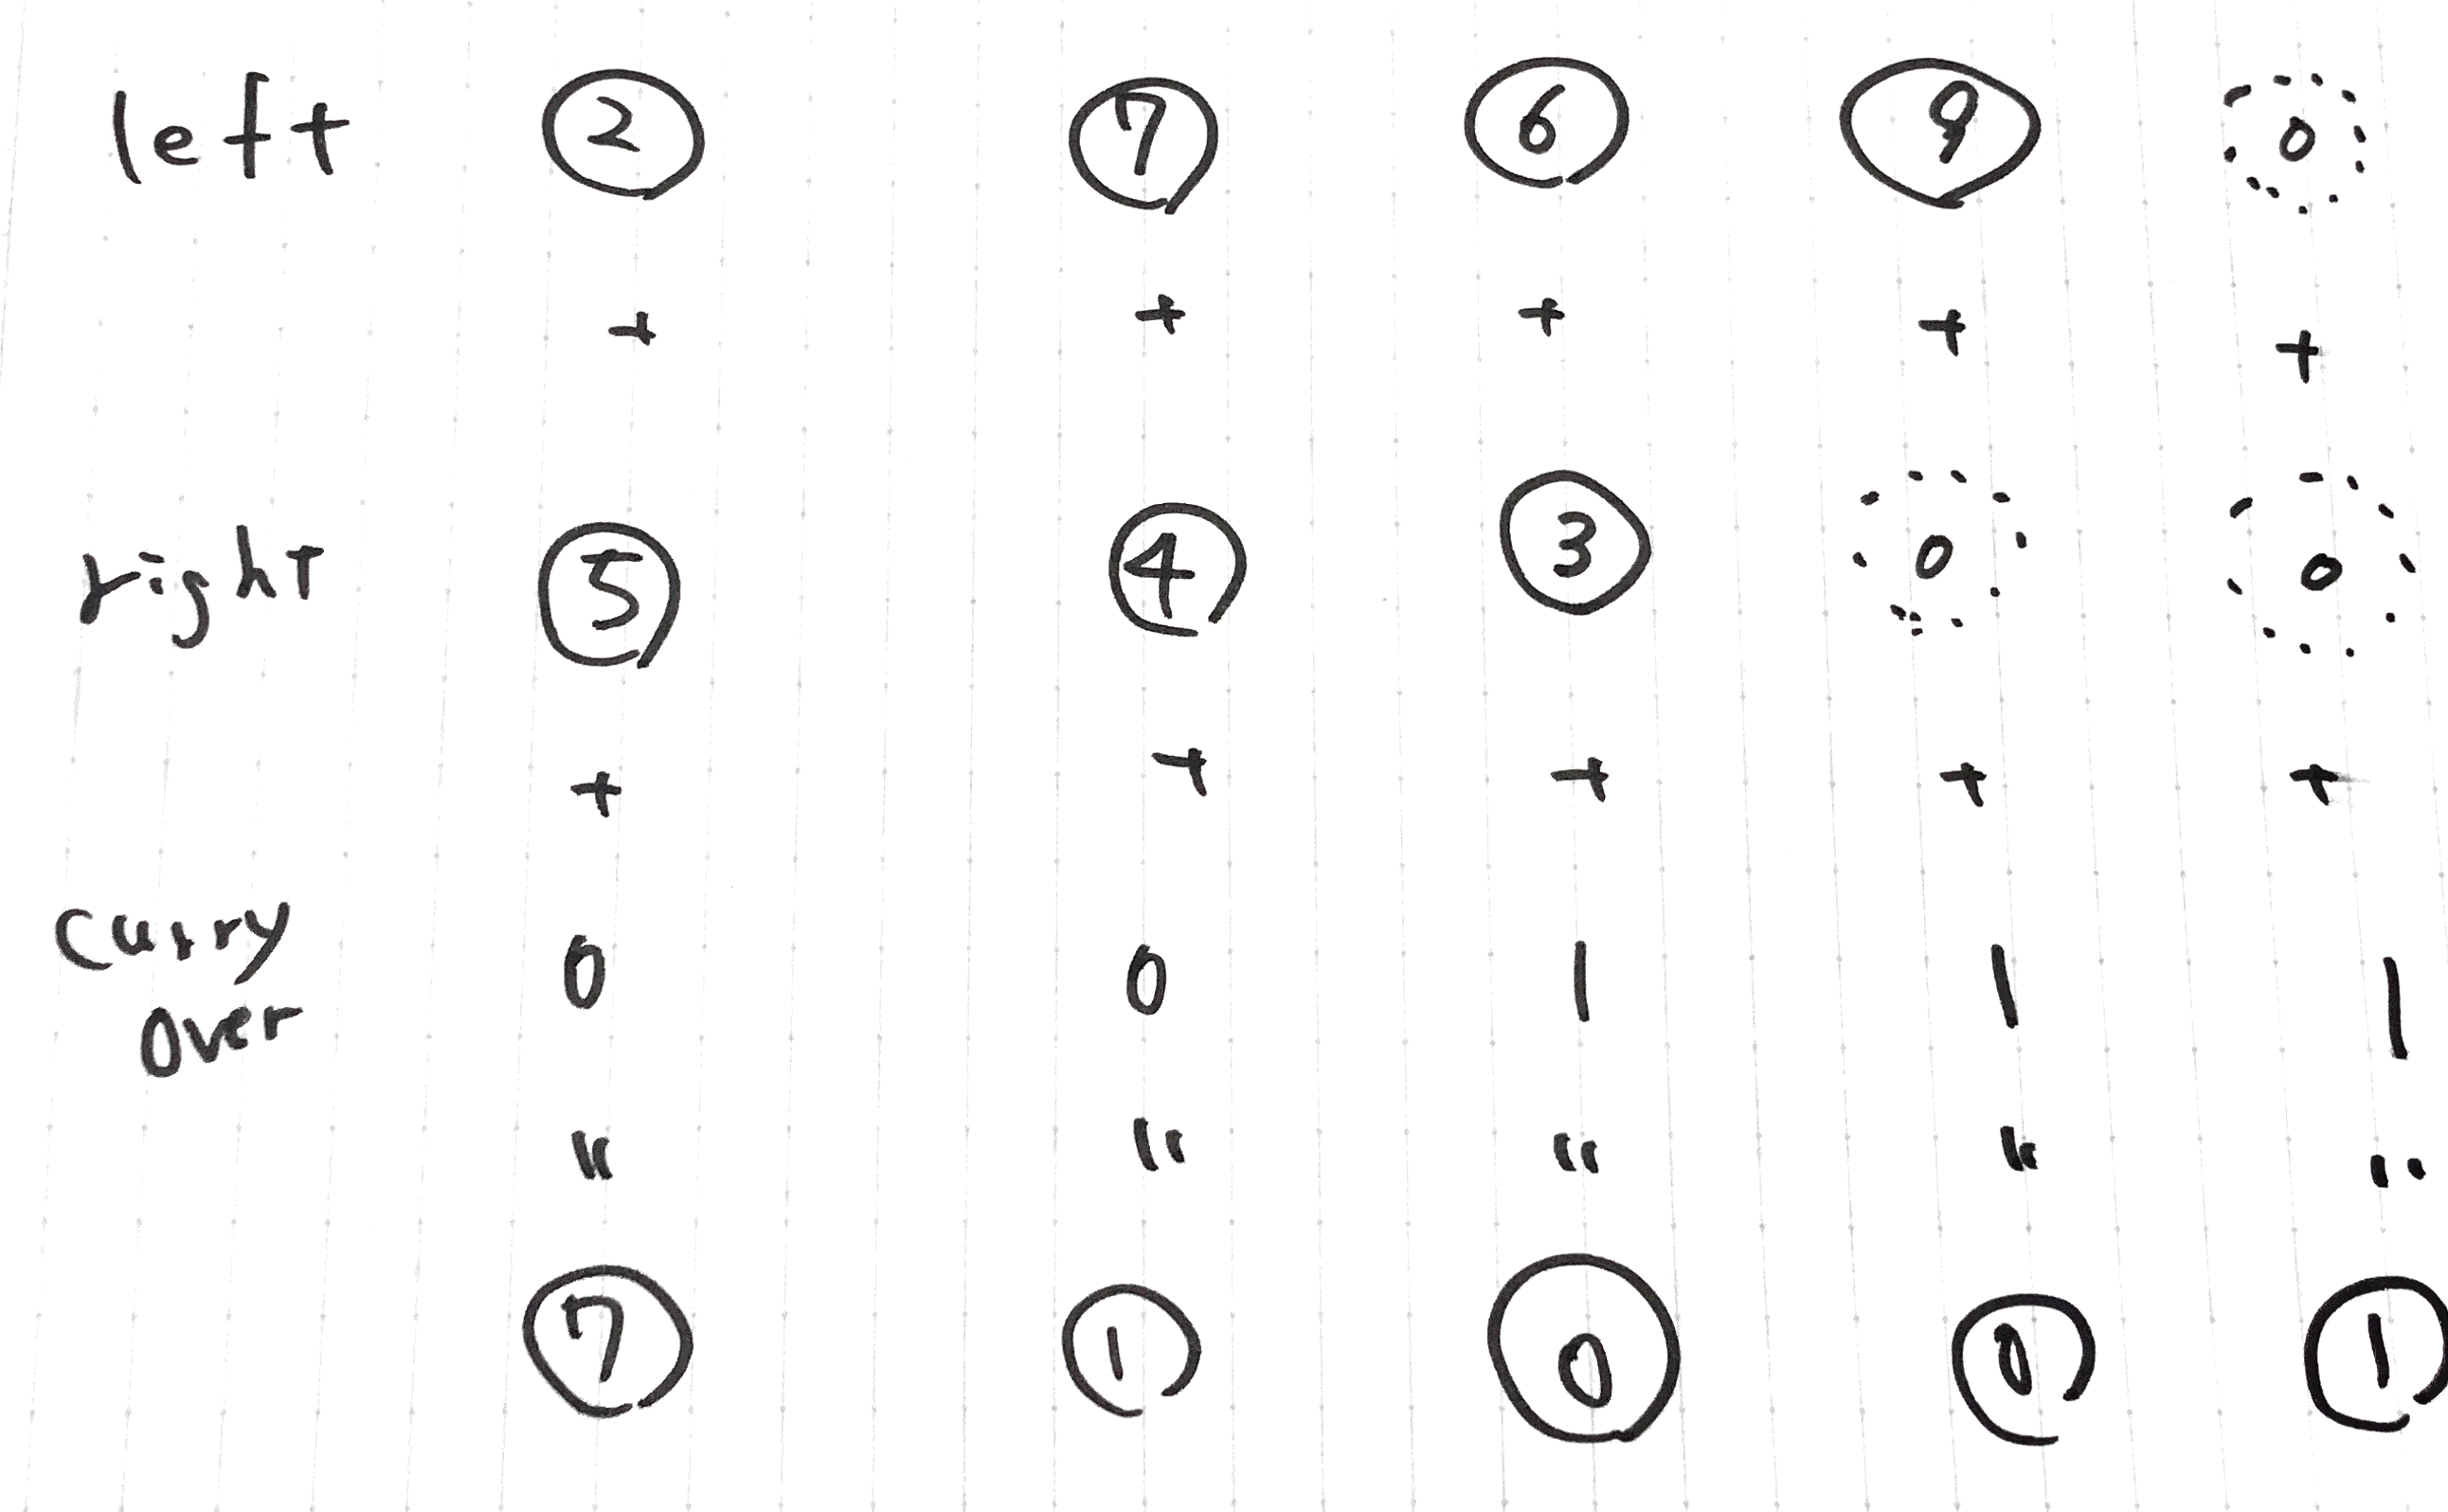 left 2 7 6 9 0
+ + + + +
right 5 4 3 0 0
+ + + + +
Curry 
Over 0 0 1 1 1
" " " " "
7 1 0 0 1